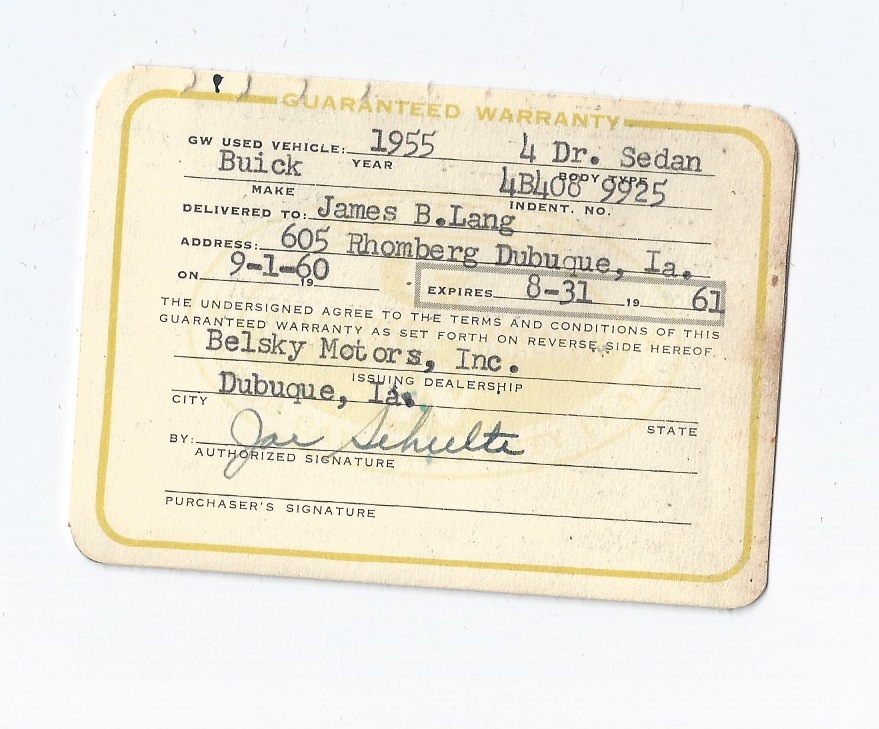 GUARANTEED WARRANTY
GW USED VEHICLE: 1955 4 Dr. Sedan
YEAR BODY TYPE
Buick 4B408 9925
MAKE INDENT. NO.
DELIVERED TO: James B.Lang
ADDRESS: 605 Rhomberg Dubuque, Ia.
ON 9-1-60 19 EXPIRES 8-31 19 61
THE UNDERSIGNED AGREE TO THE TERMS AND CONDITIONS OF THIS
GUARANTEED WARRANTY AS SET FORTH ON REVERSE SIDE HEREOF.
Belsky Motors, Inc.
ISSUING DEALERSHIP
Dubuque, Ia.
CITY STATE
BY: Joe Schulte
AUTHORIZED SIGNATURE
PURCHASER'S SIGNATURE